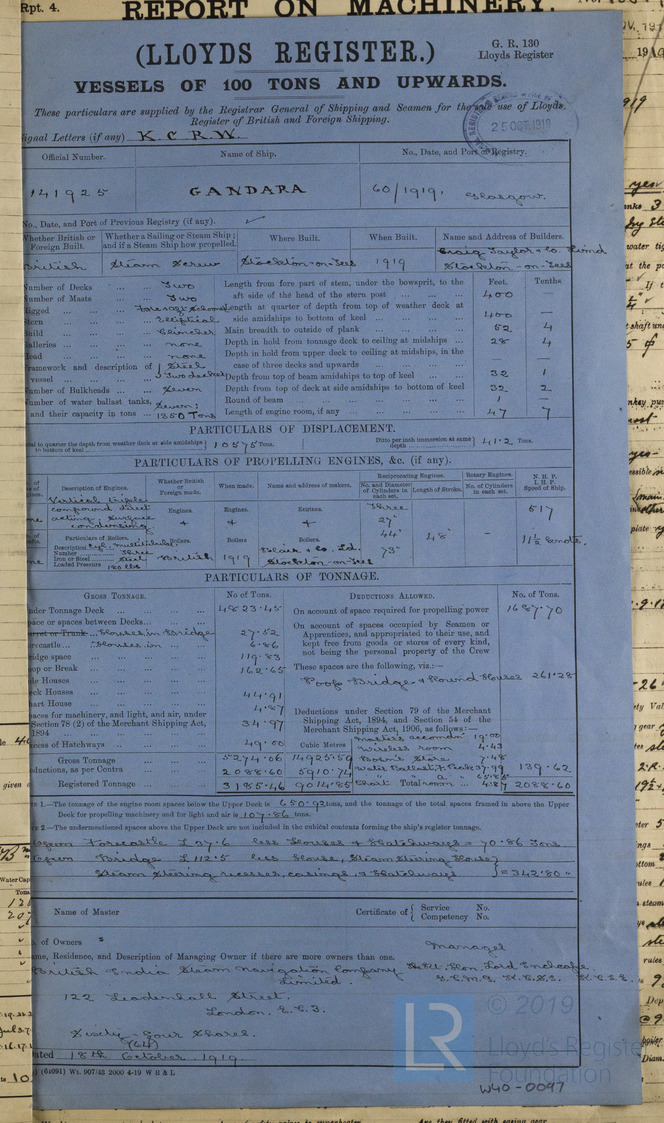 Rpt. 4. REPORT ON MACHINERY.
(LLOYDS REGISTER.)
G. R. 130
Lloyds Register
VESSELS OF 100 TONS AND UPWARDS.
These particulars are supplied by the Registrar General of Shipping and Seamen for the sole use of Lloyds
Register of British and Foreign Shipping.
25 OCT 1919
ignal Letters (if any) K C R W.
Official Number. Name of Ship. No., Date, and Port of Registry.
141925 GANDARA 60/1919, Glasgow.
No., Date, and Port of Previous Registry (if any).
Whether British or Foreign Built. Whether a Sailing or Steam Ship; and if a Steam Ship how propelled. Where Built. When Built. Name and Address of Builders.
British Steam Screw Stockton-on-Tees 1919 Craig Taylor & Co Limd
Stockton-on-Tees
Number of Decks Two
Number of Masts Two
Rigged Fore & Aft Schooner
Stern Elliptical
Build Clincher
Galleries none
Head none
Framework and description of vessel Steel Two decked
Number of Bulkheads Seven
Number of water ballast tanks, and their capacity in tons Seven; 1350 Tons
Feet. Tenths
Length from fore part of stem, under the bowsprit, to the aft side of the head of the stern post 400 —
Length at quarter of depth from top of weather deck at side amidships to bottom of keel 400 —
Main breadth to outside of plank 52 4
Depth in hold from tonnage deck to ceiling at midships 28 4
Depth in hold from upper deck to ceiling at midships, in the case of three decks and upwards — —
Depth from top of beam amidships to top of keel 32 1
Depth from top of deck at side amidships to bottom of keel 32 2
Round of beam 1 —
Length of engine room, if any 47 7
PARTICULARS OF DISPLACEMENT.
al to quarter the depth from weather deck at side amidships to bottom of keel 10575 Tons. Ditto per inch immersion at same depth 41.2 Tons.
PARTICULARS OF PROPELLING ENGINES, &c. (if any).
Description of Engines. Whether British or Foreign made. When made. Name and address of makers. Reciprocating Engines. Rotary Engines. N. H. P. I. H. P. Speed of Ship.
No. and Diameter of Cylinders in each set. Length of Stroke. No. of Cylinders in each set.
Vertical triple compound direct acting, surface condensing
Engines. Engines. Engines. Three
27"
44"
73" 48" - 517
11½ knots.
Particulars of Boilers. Boilers. Boilers Boilers.
Description
Number Three
Iron or Steel Steel
Loaded Pressure 180 lbs
British 1919 Blair & Co. Ld.
Stockton-on-Tees
PARTICULARS OF TONNAGE.
GROSS TONNAGE. No of Tons. DEDUCTIONS ALLOWED. No. of Tons.
nder Tonnage Deck 4823.45
pace or spaces between Decks
Turret or Trunk Houses in Bridge 27.52
orecastle Houses in 6.86
ridge space 119.83
oop or Break 162.65
ide Houses
eck Houses 44.91
hart House 4.87
paces for machinery, and light, and air, under Section 78 (2) of the Merchant Shipping Act, 1894 34.97
xcess of Hatchways 49.00
Gross Tonnage 5274.06 14925.59
eductions, as per Contra 2088.60 5910.74
Registered Tonnage 3185.46 9014.85
On account of space required for propelling power 1687.70
On account of spaces occupied by Seamen or Apprentices, and appropriated to their use, and kept free from goods or stores of every kind, not being the personal property of the Crew
These spaces are the following, viz.:—
Poop Bridge & Round Houses 261.28
Deductions under Section 79 of the Merchant Shipping Act, 1894, and Section 54 of the Merchant Shipping Act, 1906, as follows:—
Cubic Metres
Master's accomdn 19.00
Wireless room 4.43
Bosn's Store 7.48
Water Ballast, F. Peak 37.99 139.62
Chart room 4.87
Total 2088.60
e 1.—The tonnage of the engine room spaces below the Upper Deck is 650.92 tons, and the tonnage of the total spaces framed in above the Upper
Deck for propelling machinery and for light and air is 107.86 tons.
e 2.—The undermentioned spaces above the Upper Deck are not included in the cubical contents forming the ship's register tonnage.
Open Forecastle L 37.6 less Houses & Hatchways = 70.86 Tons
Open Bridge L 112.5 less House, Steam Steering House,
Steam Steering recesses, casings, & Hatchways } = 342.80 "
Name of Master Certificate of { Service No. Competency No.
of Owners
ame, Residence, and Description of Managing Owner if there are more owners than one.
British India Steam Navigation Company Limited.
122 Leadenhall Street,
London, E.C.3.
Manager
The Rt. Hon. Lord Inchcape
G.C.M.G. K.C.S.I. K.C.I.E.
Sixty-four Shares.
(64)
Dated 18th October, 1919.
(64091) Wt. 907/43 2000 4-19 W B & L
LR © 2019
Lloyd's Register
Foundation
W40-0097